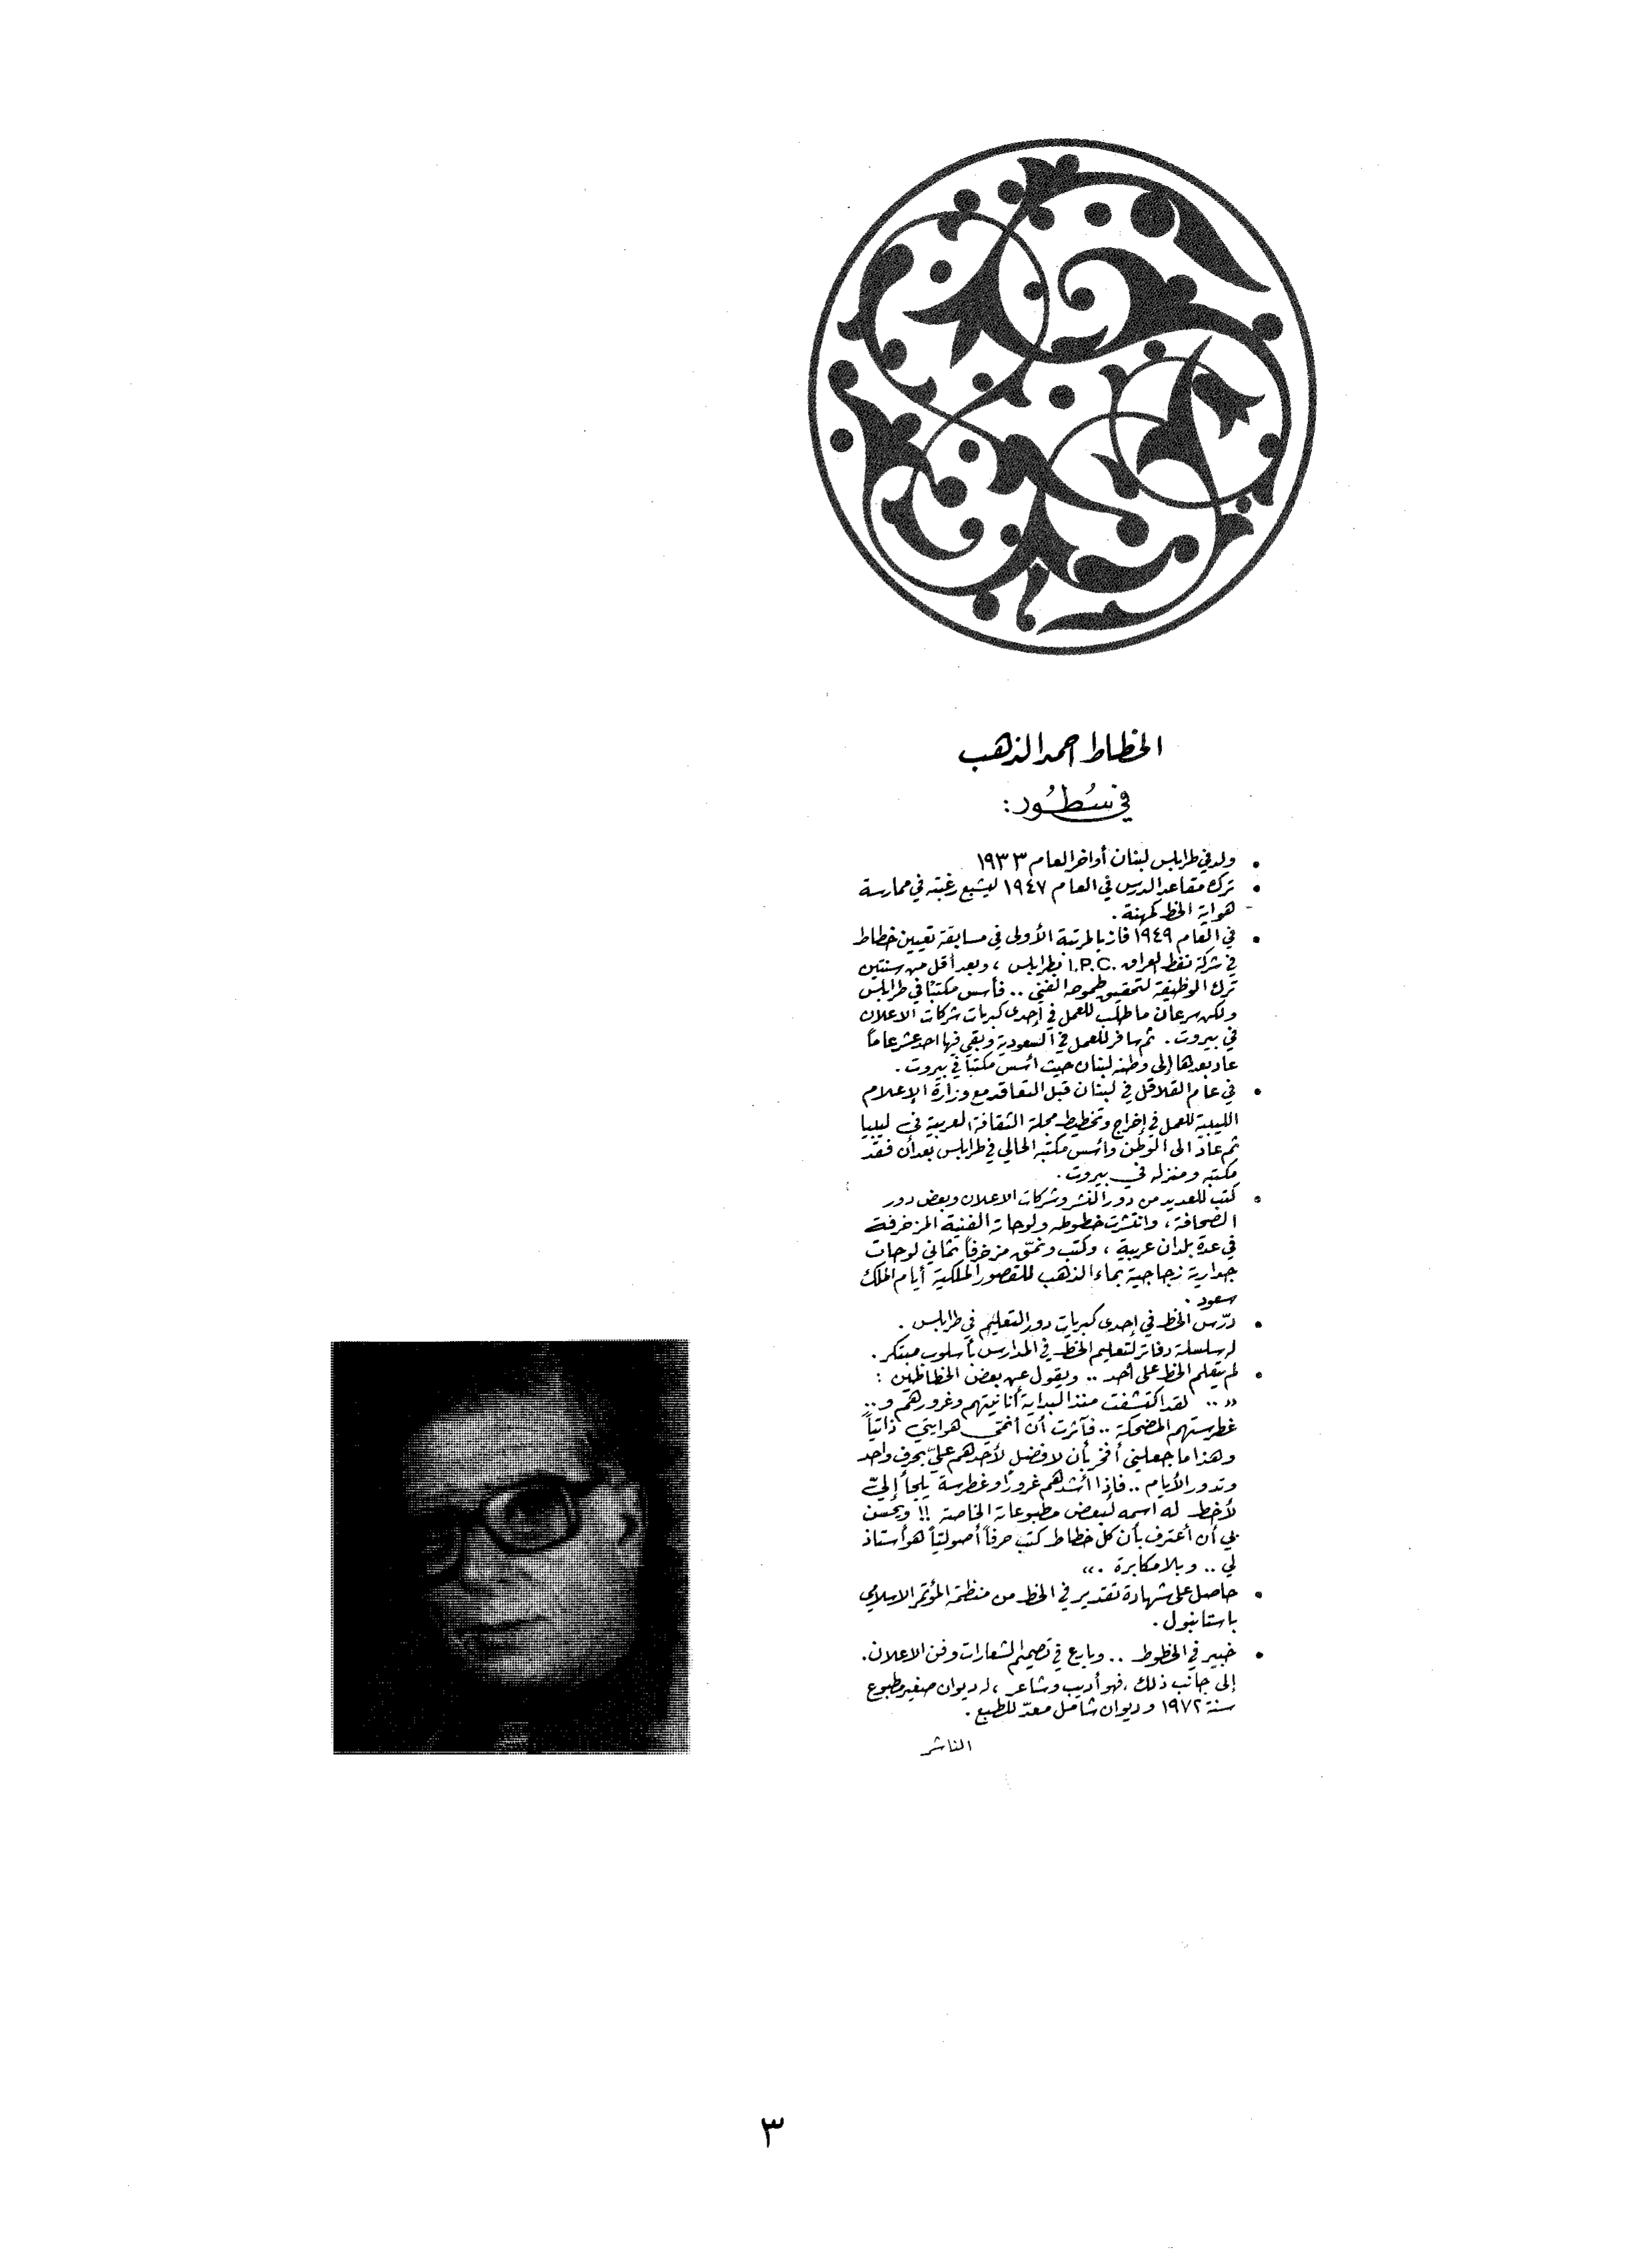 الخطاط احمد الذهب
في سُطُور:
• ولد في طرابلس لبنان أواخر العام ١٩٣٣
• ترك مقاعد الدرس في العام ١٩٤٧ ليشبع رغبته في ممارسة
- هواية الخط كمهنة .
• في العام ١٩٤٩ فاز بالمرتبة الأولى في مسابقة تعيين خطاط
في شركة نفط العراق I.P.C. بطرابلس ، وبعد أقل من سنتين
ترك الوظيفة لتحقيق طموحه الفني .. فأسس مكتبًا في طرابلس
ولكن سرعان ما طلب للعمل في إحدى كبريات شركات الاعلان
في بيروت . ثم سافر للعمل في السعودية وبقي فيها احد عشر عاماً
عاد بعدها إلى وطنه لبنان حيث أسس مكتباً في بيروت .
• في عام القلاقل في لبنان قبل التعاقد مع وزارة الإعلام
الليبية للعمل في إخراج وتخطيط مجلة الثقافة العربية في ليبيا
ثم عاد الى الوطن وأسس مكتبه الحالي في طرابلس بعد أن فقد
مكتبه ومنزله في بيروت .
• كتب للعديد من دور النشر وشركات الاعلان وبعض دور
الصحافة ، وانتشرت خطوطه ولوحاته الفنية المزخرفة
في عدة بلدان عربية ، وكتب ونمّق مزخرفاً ثماني لوحات
جدارية زجاجية بماء الذهب للقصور الملكية أيام الملك
سعود .
• درّس الخط في إحدى كبريات دور التعليم في طرابلس .
له سلسلة دفاتر لتعليم الخط في المدارس بأسلوب مبتكر .
• لم يتعلم الخط على أحد .. ويقول عن بعض الخطاطين :
« .. لقد اكتشفت منذ البداية أنانيتهم وغرورهم و ..
غطرستهم المضحكة .. فآثرت أن أنمّي هوايتي ذاتياً
وهذا ما جعلني أفخر بأن لا فضل لأحدهم عليّ بحرف واحد
وتدور الأيام .. فإذا أشدهم غروراً وغطرسة يلجأ إليّ
لأخط له اسمه لبعض مطبوعاته الخاصة !! ويحسن
بي أن أعترف بأن كل خطاط كتب حرفاً أصولياً هو أستاذ
لي .. وبلا مكابرة . »
• حاصل على شهادة تقدير في الخط من منظمة المؤتمر الاسلامي
باستانبول .
• خبير في الخطوط .. وبارع في تصميم الشعارات وفن الاعلان .
إلى جانب ذلك ، فهو أديب وشاعر ، له ديوان صغير مطبوع
سنة ١٩٧٢ وديوان شامل معدّ للطبع .
الناشر
٣